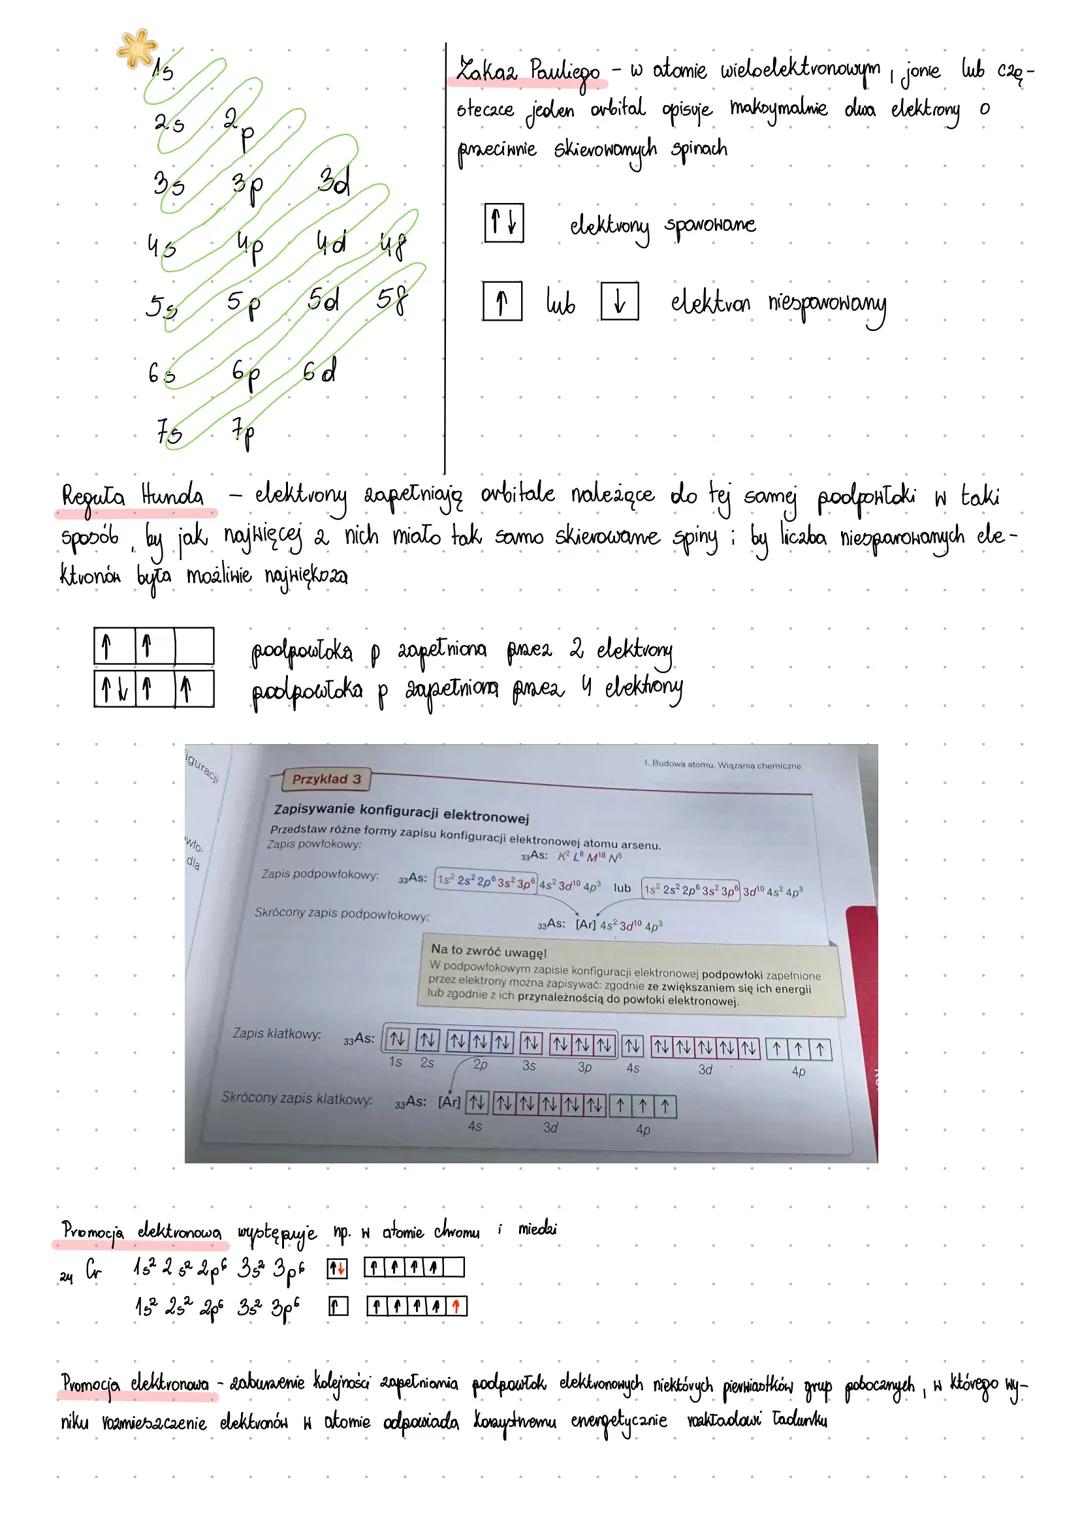 1s
2s 2p
3s 3p 3d
4s 4p 4d 4f
5s 5p 5d 5f
6s 6p 6d
7s 7p
Zakaz Pauliego - w atomie wieloelektronowym, jonie lub czą-
steczce jeden orbital opisuje maksymalnie dwa elektrony o
przeciwnie skierowanych spinach
↑↓ elektrony sparowane
↑ lub ↓ elektron niesparowany
Reguła Hunda - elektrony zapełniają orbitale należące do tej samej podpowłoki w taki
sposób, by jak najwięcej z nich miało tak samo skierowane spiny ; by liczba niesparowanych ele-
ktronów była możliwie największa
↑ ↑ podpowłoka p zapełniona przez 2 elektrony
↑↓ ↑ ↑ podpowłoka p zapełniona przez 4 elektrony
iguracji
wło-
dla
1. Budowa atomu. Wiązania chemiczne
Przykład 3
Zapisywanie konfiguracji elektronowej
Przedstaw różne formy zapisu konfiguracji elektronowej atomu arsenu.
Zapis powłokowy: ₃₃As: K² L⁸ M¹⁸ N⁵
Zapis podpowłokowy: ₃₃As: 1s² 2s² 2p⁶ 3s² 3p⁶ 4s² 3d¹⁰ 4p³ lub 1s² 2s² 2p⁶ 3s² 3p⁶ 3d¹⁰ 4s² 4p³
Skrócony zapis podpowłokowy: ₃₃As: [Ar] 4s² 3d¹⁰ 4p³
Na to zwróć uwagę!
W podpowłokowym zapisie konfiguracji elektronowej podpowłoki zapełnione
przez elektrony można zapisywać: zgodnie ze zwiększaniem się ich energii
lub zgodnie z ich przynależnością do powłoki elektronowej.
Zapis klatkowy: ₃₃As: ↑↓ ↑↓ ↑↓ ↑↓ ↑↓ ↑↓ ↑↓ ↑↓ ↑↓ ↑↓ ↑↓ ↑↓ ↑↓ ↑↓ ↑↓ ↑ ↑ ↑
1s 2s 2p 3s 3p 4s 3d 4p
Skrócony zapis klatkowy: ₃₃As: [Ar] ↑↓ ↑↓ ↑↓ ↑↓ ↑↓ ↑↓ ↑ ↑ ↑
4s 3d 4p
Promocja elektronowa występuje np. w atomie chromu i miedzi
₂₄Cr 1s² 2s² 2p⁶ 3s² 3p⁶ ↑↓ ↑ ↑ ↑ ↑
1s² 2s² 2p⁶ 3s² 3p⁶ ↑ ↑ ↑ ↑ ↑ ↑
Promocja elektronowa - zaburzenie kolejności zapełniania podpowłok elektronowych niektórych pierwiastków grup pobocznych, w którego wy-
niku rozmieszczenie elektronów w atomie odpowiada korzystnemu energetycznie rozkładowi ładunku